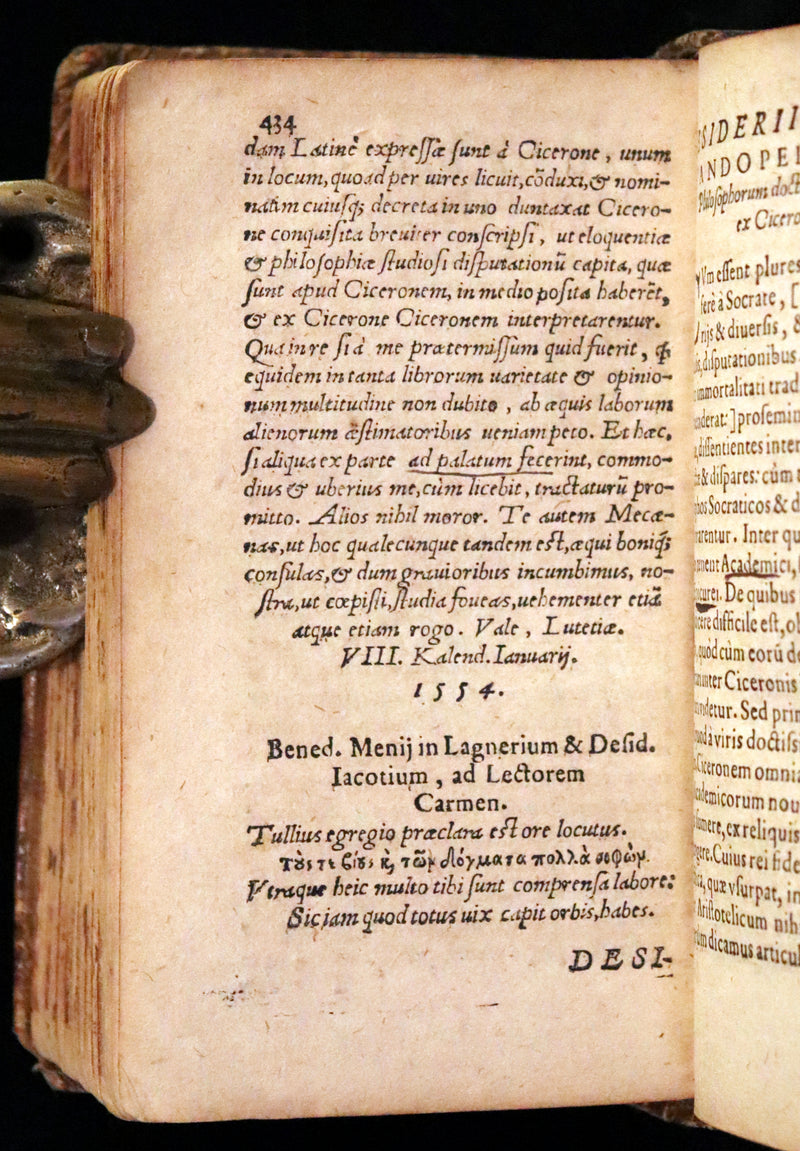 434
dam Latinè expressæ sunt à Cicerone, unum
in locum, quoad per uires licuit, cõduxi, & nomi-
natim cuiusq; decreta in uno duntaxat Cicero-
ne conquisita breuiter conscripsi, ut eloquentiæ
& philosophiæ studiosi disputationũ capita, quæ
sunt apud Ciceronem, in medio posita haberẽt,
& ex Cicerone Ciceronem interpretarentur.
Qua in re si à me prætermissum quid fuerit, ꝙ
equidem in tanta librorum uarietate & opinio-
num multitudine non dubito, ab æquis laborum
alienorum æstimatoribus ueniam peto. Et hæc,
si aliqua ex parte ad palatum fecerint, commo-
dius & uberius me, cùm licebit, tractaturũ pro-
mitto. Alios nihil moror. Te autem Mecæ-
nas, ut hoc qualecunque tandem est, æqui boniq́;
consulas, & dum grauioribus incumbimus, no-
stra, ut cœpisti, studia foueas, uehementer etiã
atque etiam rogo. Vale, Lutetiæ.
VIII. Kalend. Ianuarij.
1554.
Bened. Menij in Lagnerium & Desid.
Iacotium, ad Lectorem
Carmen.
Tullius egregio præclara est ore locutus.
τῶν δόγματα πολλὰ σοφῶν.
Vtraque heic multo tibi sunt comprensa labore:
Sic jam quod totus uix capit orbis, habes.
DESI-
SIDERII
ANDOPE
Philosophorum doct
ex Cicero
Vm essent plures
ferè à Socrate, [
rijs & diuersis, &
disputationibus
immortalitati trad
derat:] prosemin
dissentientes inter
& dispares: cùm t
hos Socraticos & d
rentur. Inter qu
Academici,
curei. De quibus
ere difficile est, ob
quòd cùm eorũ de
inter Ciceronis
detur. Sed prin
à viris doctiss
Ciceronem omnia
demicorum nou
mere, ex reliquis
gere. Cuius rei fide
quæ vsurpat, in
Aristotelicum nih
dicamus articul